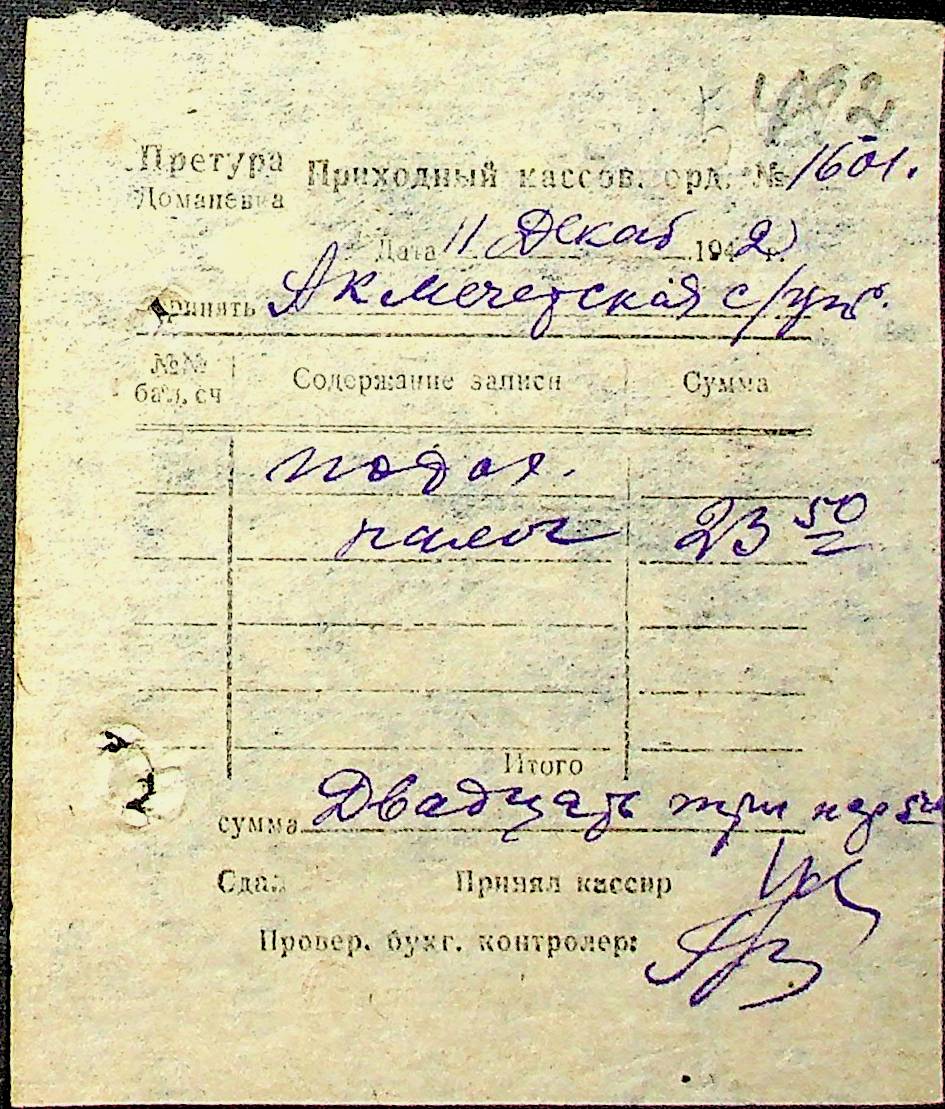 492
Претура Приходный кассов. орд. № 1601.
Доманевка
Дата 11 Декаб 1942 г.
Принять Акмечетская с/упр.
№№ бал. сч Содержание записи Сумма
подох.
налог 23 50
Итого
сумма Двадцать три кар 50
Сдал Принял кассир
Провер. бухг. контролер: